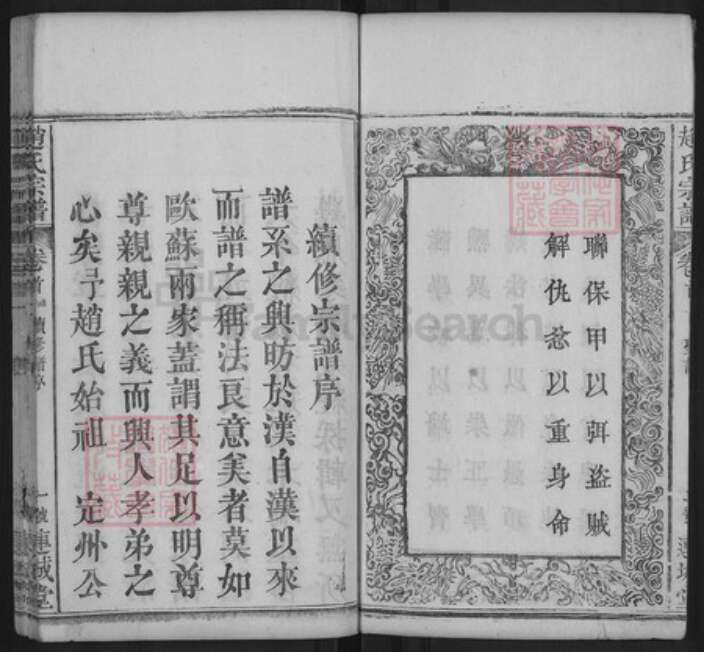 聯保甲以弭盜賊
解仇忿以重身命
趙氏宗譜
卷首
續修宗譜序
譜系之興昉於漢自漢以來
而譜之稱法良意美者莫如
歐蘇兩家蓋謂其足以明尊
尊親親之義而興人孝弟之
心矣予趙氏始祖 定州公
趙氏宗譜
卷首
一號
連城堂
FamilySearch